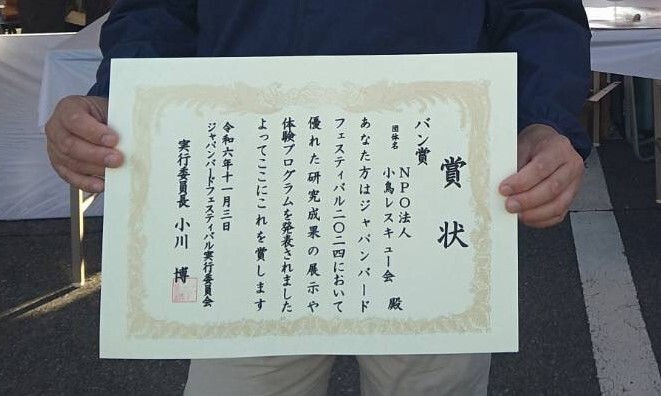 賞状
バン賞
団体名
NPO法人
小鳥レスキュー会 殿
あなた方はジャパンバード
フェスティバル二〇二四において
優れた研究成果の展示や
体験プログラムを発表されました
よってここにこれを賞します
令和六年十一月三日
ジャパンバードフェスティバル実行委員会
実行委員長 小川 博